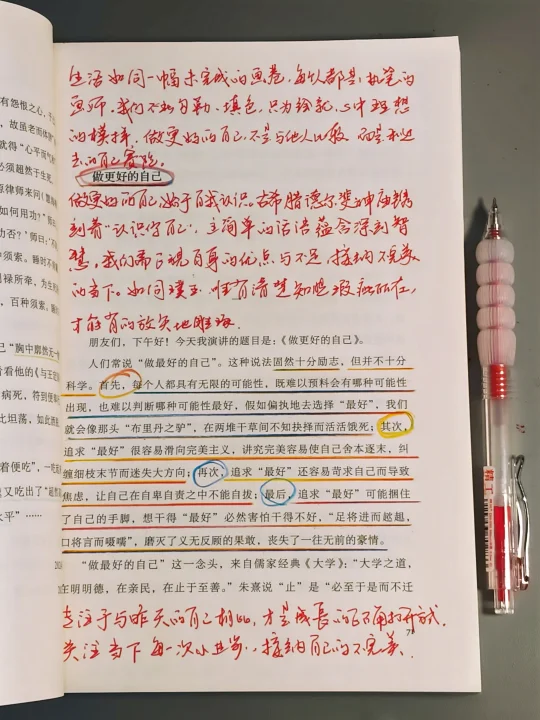 生活如同一幅未完成的画卷，每个人都是执笔的
画师，我们不断勾勒、填色，只为绘就心中理想
的模样，做更好的自己，不是与他人比较，而是和过
去的自己
做更好的自己
做更好的自己，始于自我认识。古希腊德尔斐神庙镌
刻着“认识你自己”，这简单的话语蕴含深刻智
慧，我们需正视自身的优点与不足，接纳不完美
的当下。如同璞玉，唯有清楚知晓瑕疵所在，
才能有的放矢地雕琢
朋友们，下午好！今天我演讲的题目是：《做更好的自己》。
人们常说“做最好的自己”。这种说法固然十分励志，但并不十分
科学。首先，每个人都具有无限的可能性，既难以预料会有哪种可能性
出现，也难以判断哪种可能性最好，假如偏执地去选择“最好”，我们
就会像那头“布里丹之驴”，在两堆干草间不知抉择而活活饿死；其次，
追求“最好”很容易滑向完美主义，讲究完美容易使自己舍本逐末，纠
缠细枝末节而迷失大方向；再次，追求“最好”还容易苛求自己而导致
焦虑，让自己在自卑自责之中不能自拔；最后，追求“最好”可能捆住
了自己的手脚，想干得“最好”必然害怕干得不好，“足将进而趑趄，
口将言而嗫嚅”，磨灭了义无反顾的果敢，丧失了一往无前的豪情。
“做最好的自己”这一念头，来自儒家经典《大学》：“大学之道，
在明明德，在亲民，在止于至善。”朱熹说“止”是“必至于是而不迁
专注于与昨天的自己相比，才是成长的正确打开方式。
关注当下每一次小进步，接纳自己的不完美。
有怨恨之心，
故虽老而体
就得“心平而气
必须超然于生死
原律师来问
如何用功？”师曰
功否？”师曰：“不
中须索。睡时不
禄所牵，为生死
，百种须索。睡
己“胸中廓然无一
看看他的《与王
病死，符到便
比坦荡，如此
着便吃”，一吃
又吃出了“超然
水平”……
精工